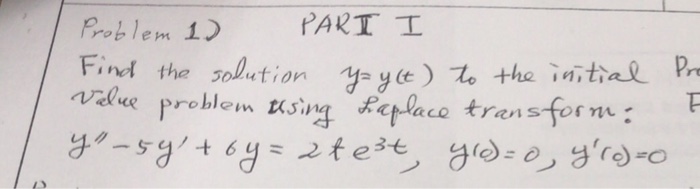 Problem 1) PART I
Find the solution y=y(t) to the initial Pr
Value problem using Laplace transform:
y"-5y'+6y=2te^3t, y(0)=0, y'(0)=0